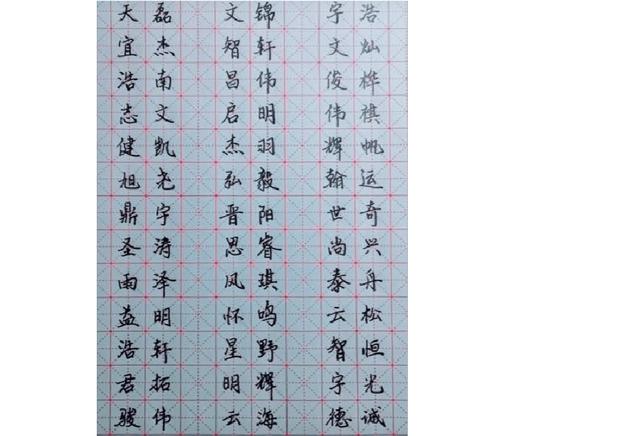 天磊 文锦 宇浩
宜杰 智轩 文灿
浩南 昌伟 俊桦
志文 启明 伟祺
健凯 杰羽 辉帆
旭尧 弘毅 翰运
鼎宇 晋阳 世奇
圣涛 思睿 尚兴
雨泽 风琪 泰舟
益明 怀鸣 云松
浩轩 星野 智恒
君拓 明辉 宇光
骏伟 云海 德诚